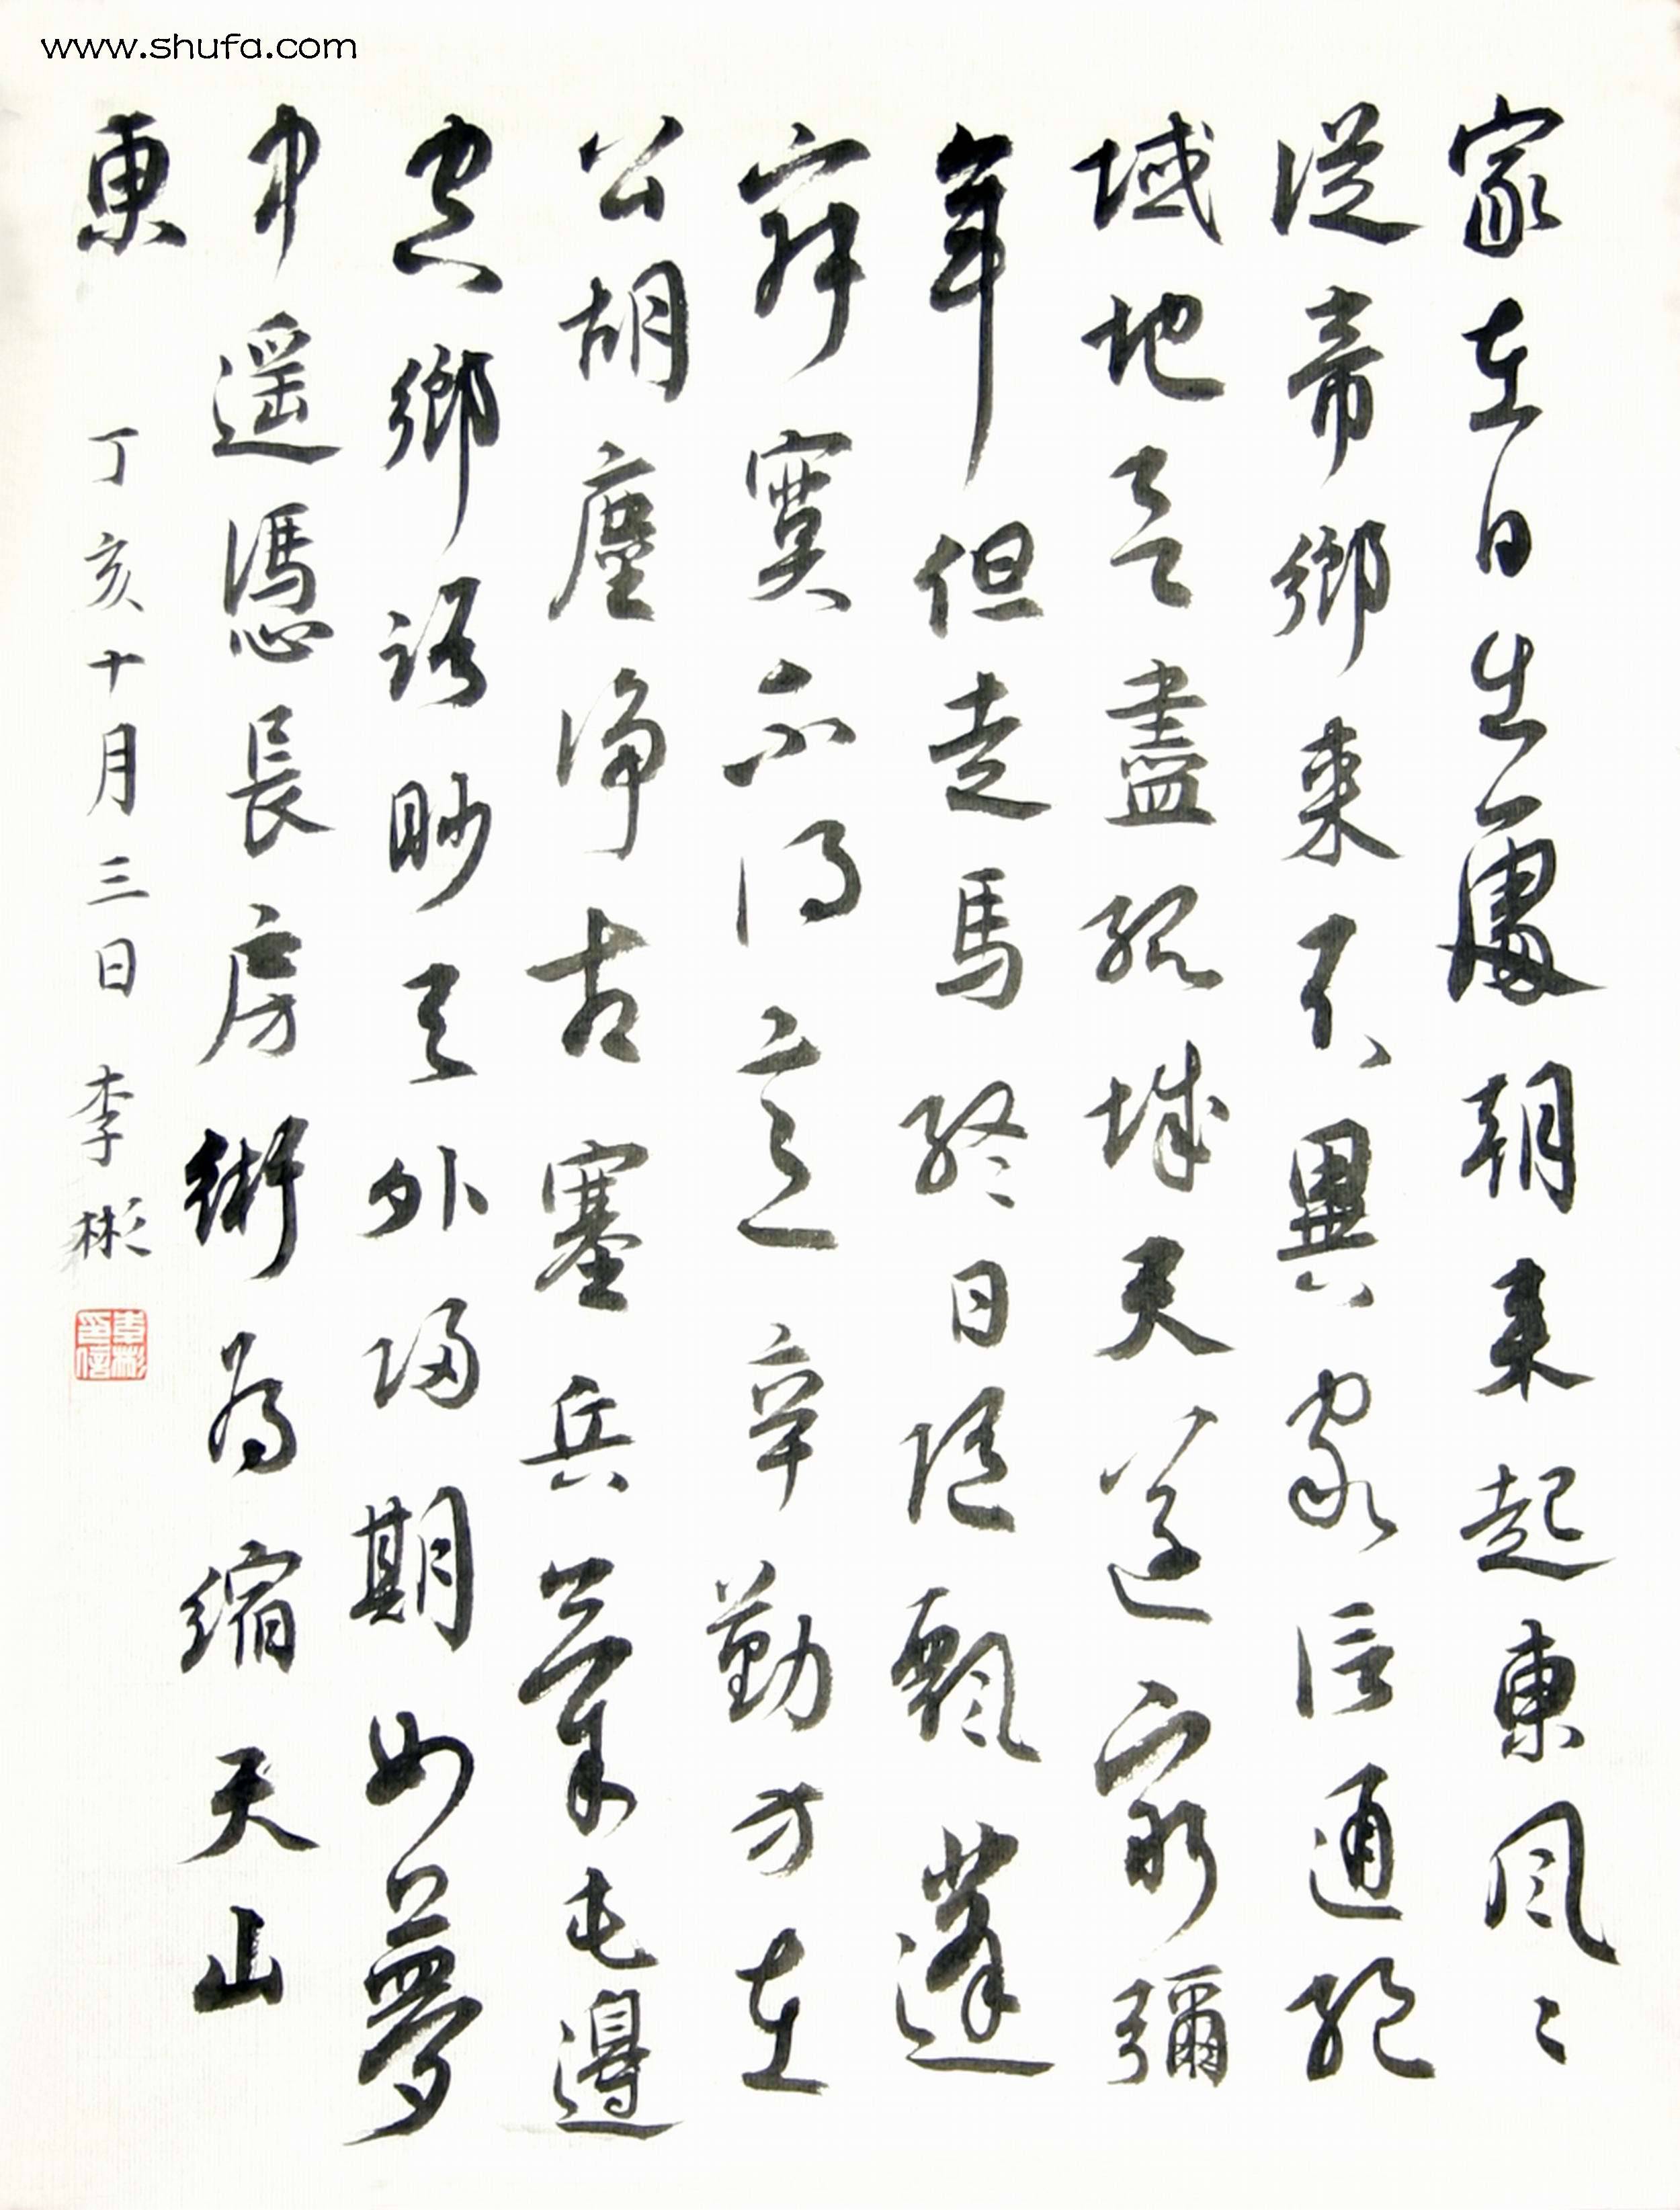 www.shufa.com
家在日出處朝来起東風〻
從帝鄉来不異家信通絕
域地欲盡孤城天遂窮彌
年但走馬終日隨飄蓬
寂寞不得意辛勤方在
公胡塵淨古塞兵氣屯邊
空鄉路眇天外歸期如夢
中遙憑長房術為縮天山
東 丁亥十月三日 李彬
李彬印信